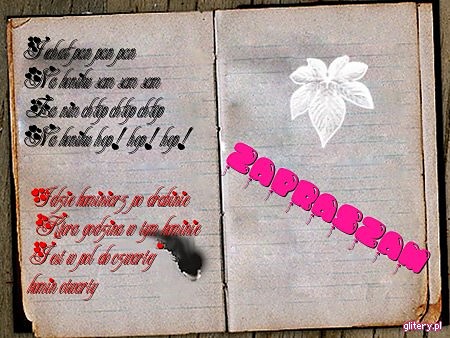 Jechał pan pan pan
Na koniku sam sam sam
Za nim chłop chłop chłop
Na koniku hop! hop! hop!
Idzie kominiarz po drabinie
Która godzina w tym kominie
Jest w pół do czwartej
komin otwarty
ZAPRASZAM
glitery.pl